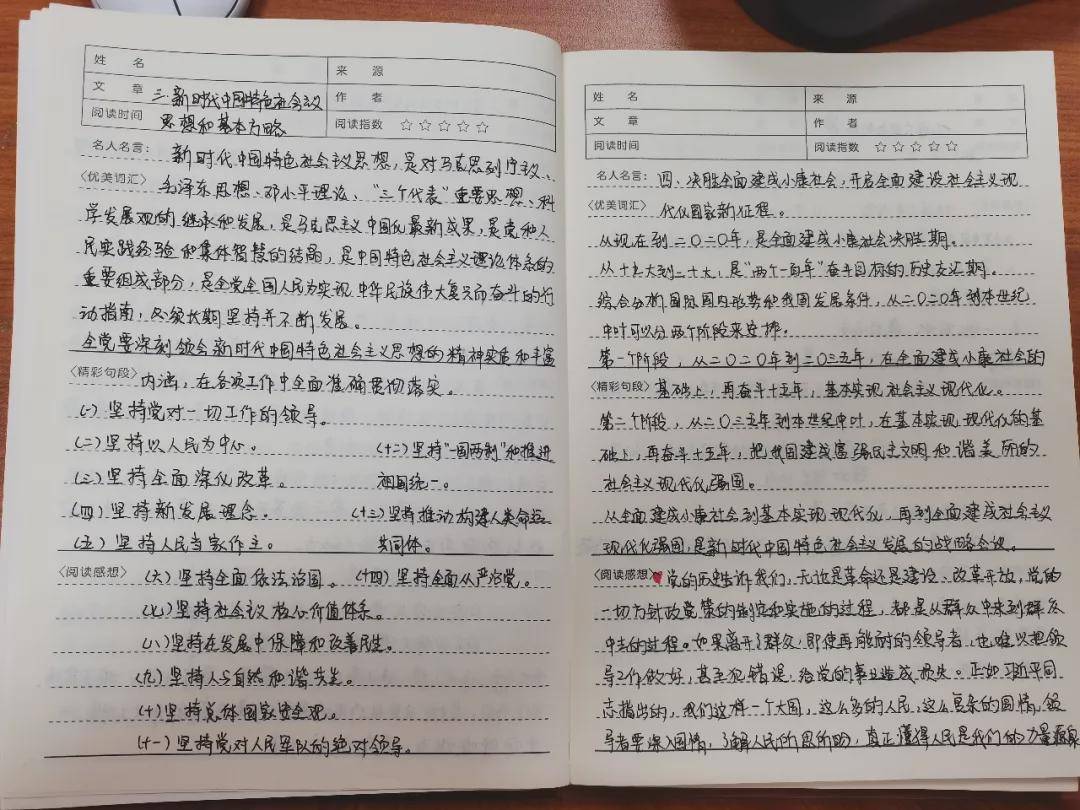 姓 名
来 源
文 章 三、新时代中国特色社会主义
作 者
阅读时间 思想和基本方略
阅读指数 ☆☆☆☆☆
名人名言: 新时代中国特色社会主义思想,是对马克思列宁主义、
〈优美词汇〉 毛泽东思想、邓小平理论、“三个代表”重要思想、科
学发展观的继承和发展,是马克思主义中国化最新成果,是党和人
民实践经验和集体智慧的结晶,是中国特色社会主义理论体系的
重要组成部分,是全党全国人民为实现中华民族伟大复兴而奋斗的行
动指南,必须长期坚持并不断发展。
全党要深刻领会新时代中国特色社会主义思想的精神实质和丰富
〈精彩句段〉 内涵,在各项工作中全面准确贯彻落实。
(一)坚持党对一切工作的领导。
(二)坚持以人民为中心。 (十二)坚持“一国两制”和推进
(三)坚持全面深化改革。 祖国统一。
(四)坚持新发展理念。 (十三)坚持推动构建人类命运
(五)坚持人民当家作主。 共同体。
〈阅读感想〉 (六)坚持全面依法治国。 (十四)坚持全面从严治党。
(七)坚持社会主义核心价值体系。
(八)坚持在发展中保障和改善民生。
(九)坚持人与自然和谐共生。
(十)坚持总体国家安全观。
(十一)坚持党对人民军队的绝对领导。
姓 名
来 源
文 章
作 者
阅读时间
阅读指数 ☆☆☆☆☆
名人名言: 四、决胜全面建成小康社会,开启全面建设社会主义现
〈优美词汇〉 代化国家新征程。
从现在到二〇二〇年,是全面建成小康社会决胜期。
从十九大到二十大,是“两个一百年”奋斗目标的历史交汇期。
综合分析国际国内形势和我国发展条件,从二〇二〇年到本世纪
中叶可以分两个阶段来安排。
第一个阶段,从二〇二〇年到二〇三五年,在全面建成小康社会的
〈精彩句段〉 基础上,再奋斗十五年,基本实现社会主义现代化。
第二个阶段,从二〇三五年到本世纪中叶,在基本实现现代化的基
础上,再奋斗十五年,把我国建成富强民主文明和谐美丽的
社会主义现代化强国。
从全面建成小康社会到基本实现现代化,再到全面建成社会主义
现代化强国,是新时代中国特色社会主义发展的战略
〈阅读感想〉 党的历史告诉我们,无论是革命还是建设、改革开放,党的
一切方针政策的制定和实施的过程,都是从群众中来到群众
中去的过程。如果离开了群众,即使再能耐的领导者,也难以把领
导工作做好,甚至犯错误,给党的事业造成损失。正如习近平同
志指出的,我们这样一个大国,这么多的人民,这么复杂的国情,领
导者要深入国情,了解人民所思所盼,真正懂得人民是我们的力量源泉